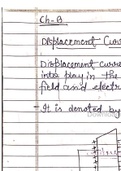 Ch-8
Displacement Curr
Displacement curre
into play in the
field and electri
- It is denoted by